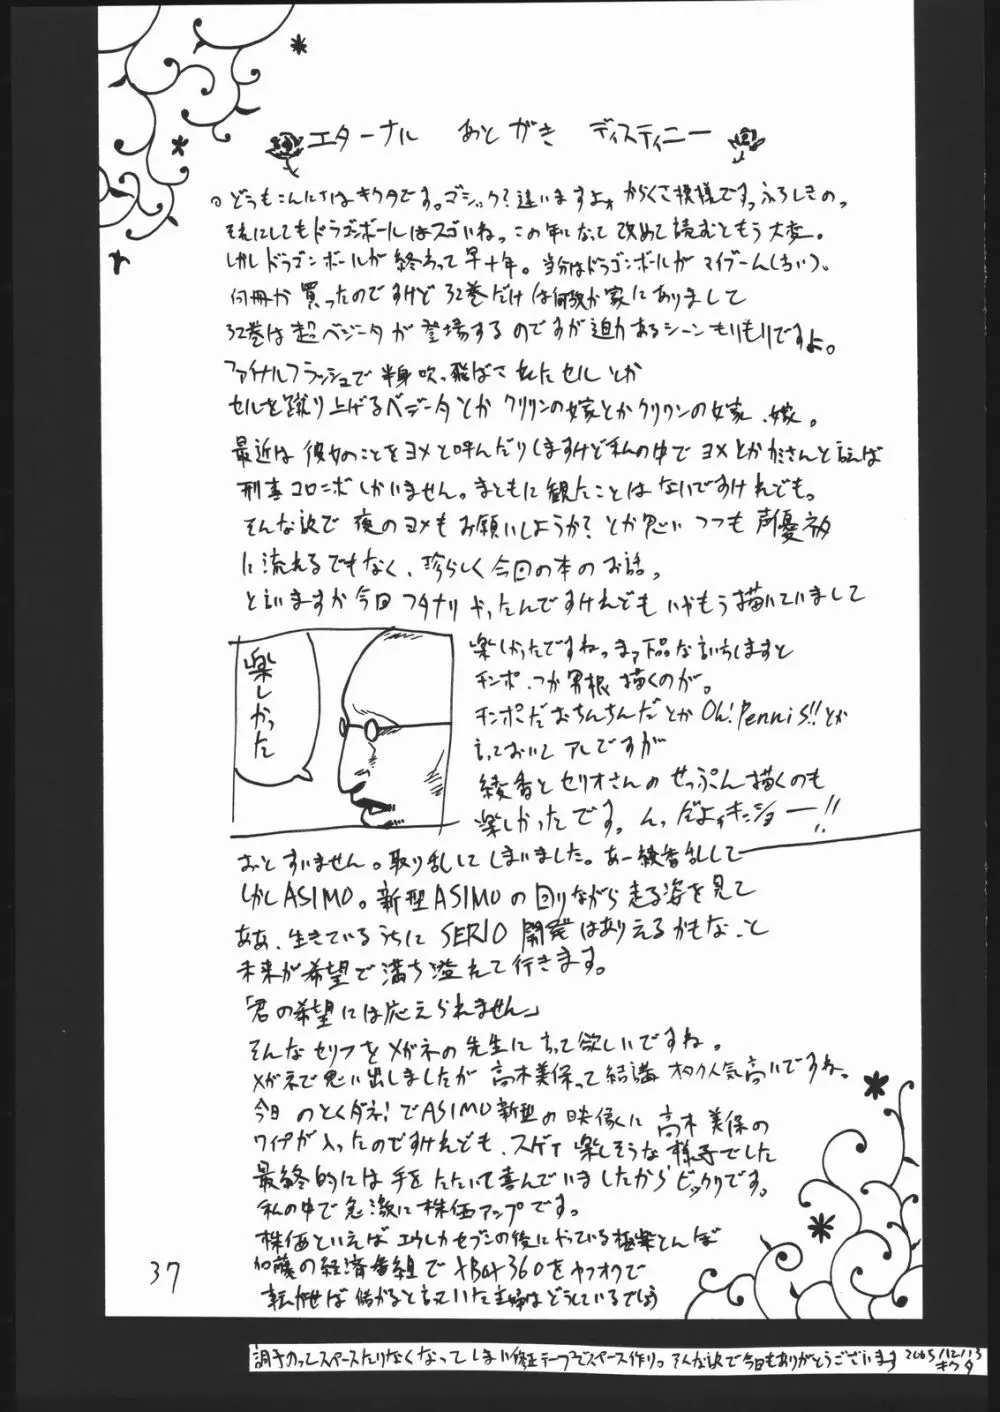 エターナル あとがき ディスティニー
どうもこんにちはキクタです。ゴシック?違いますよォからくさ模様です。ふろしきの。
それにしてもドラゴンボールはスゴいね。この年になって改めて読むともう大変。
しかしドラゴンボールが終わって早十年。当分はドラゴンボールがマイブーム(古い)。
何冊か買ったのですけど32巻だけは何故か家にありまして
32巻は超ベジータが登場するのですが迫力あるシーンもりもりですよ。
ファイナルフラッシュで半身吹っ飛ばされたセルとか
セルを蹴り上げるベジータとかクリリンの嫁とかクリリンの嫁、嫁。
最近は彼女のことをヨメと呼んだりしますけど私の中でヨメとかカミさんと言えば
刑事コロンボしかいません。まともに観たことはないですけれども。
そんな訳で夜のヨメもお願いしようか?とか思いつつも声優ネタ
に流れるでもなく、珍らしく今回の本のお話。
と言いますか今回フタナリやったんですけれどもいやもう描いていまして
楽しかった
楽しかったですね。まァ下品な言いちしますと
チンポ、つか男根描くのが。
チンポだおちんちんだとかOh!Pennis!!とか
言っておいてアレですが
綾香とセリオさんのせっぷん描くのも
楽しかったです。んっだよォキンショー!!
おとすいません。取り乱してしまいました。あー綾香乱して
しかしASIMO。新型ASIMOの回りながら走る姿を見て
ああ、生きているうちにSERIO開発はありえるかもな、と
未来が希望で満ち溢れて行きます。
「君の希望には応えられません。」
そんなセリフをメガネの先生に言って欲しいですね。
メガネで思い出しましたが高木美保って結構オタク人気高いですね。
今日のとくダネ!でASIMO新型の映像に高木美保の
ワイプが入ったのですけれども、スゲイ楽しそうな様子でした
最終的には手をたたいて喜んでいましたからビックリです。
私の中で急激に株価アップです。
株価といえばエウレカセブンの後にやっている極楽とんぼ
加藤の経済番組でXBOX360をヤフオクで
転売ば儲かると言いた主婦はどうしているでしょう
37
調子のってスペースたりなくなってしまい修正テープでスペース作り。そんな訳で今日もありがとうございます 2005/12/13
キクタ